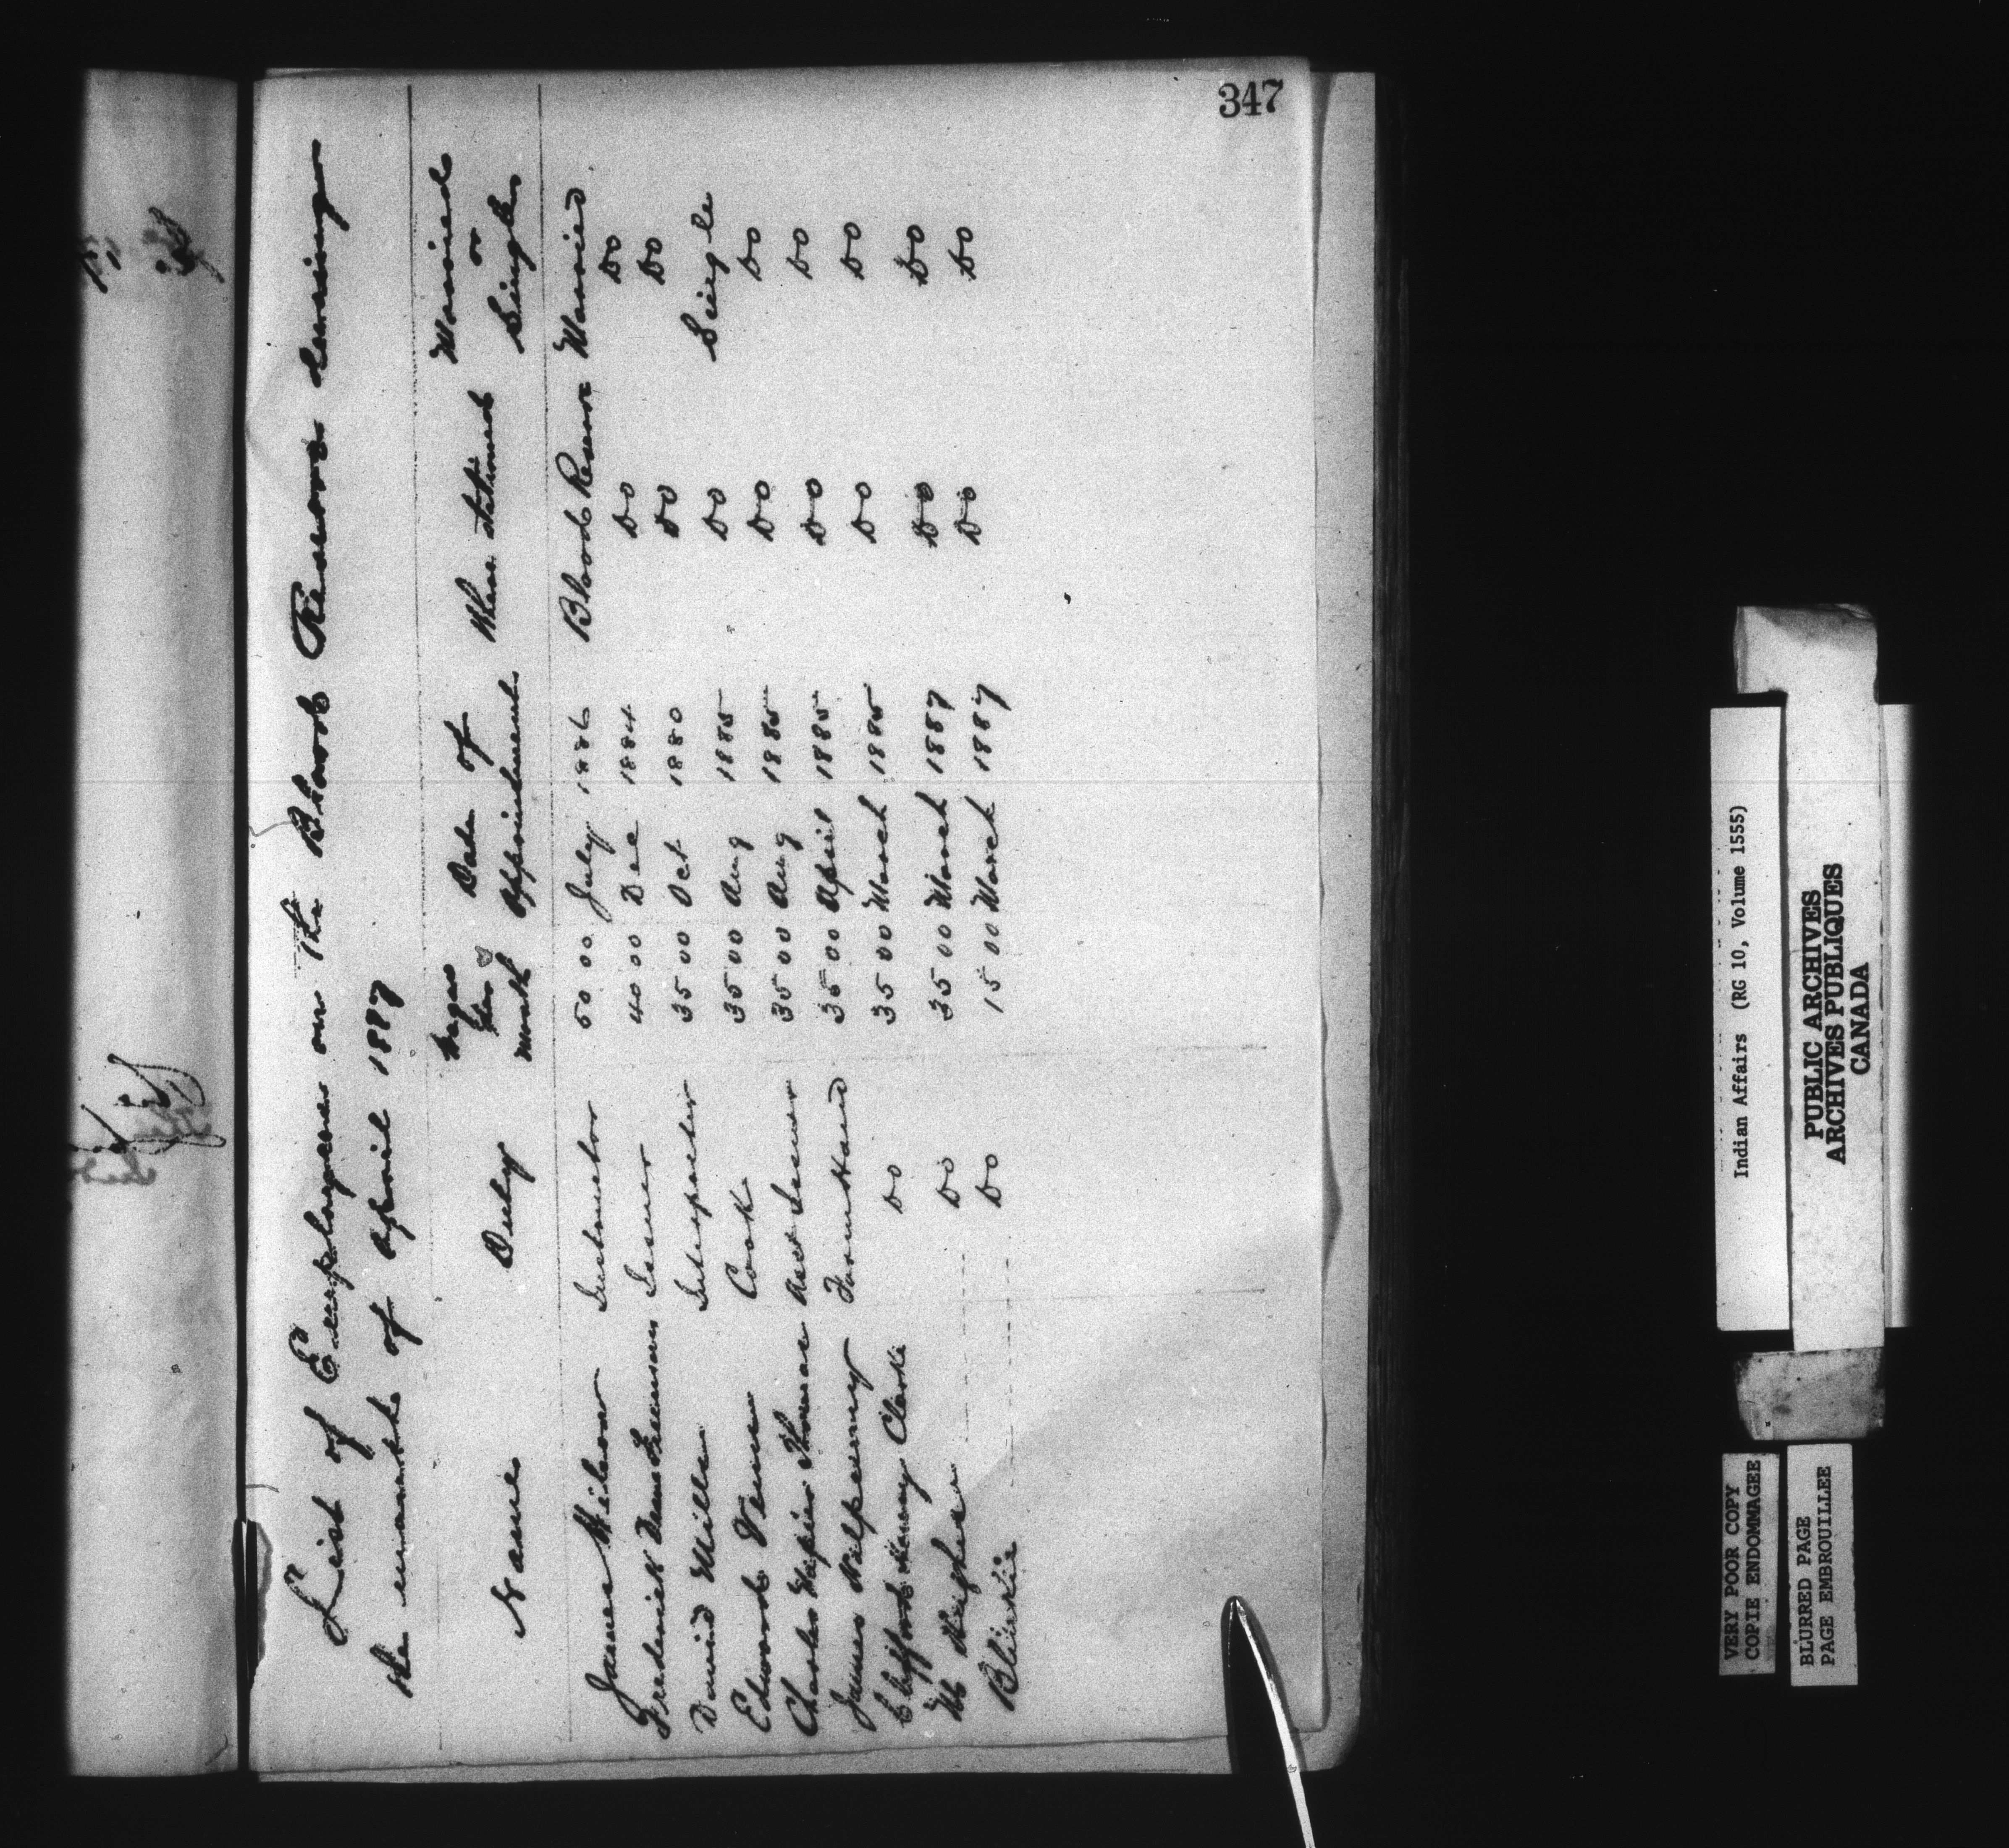 347
List of Employees on the Blood Reserve during
the month of April 1887
Name Duty Wages per month Date of Appointment Where stationed Married or Single
James Wilson Instructor 50 00 July 1886 Blood Reserve Married
Frederick Issuer 40 00 Dec 1884 Do Do
David Mills Interpreter 35 00 Oct 1880 Do Do
Edward Cook 35 00 Aug 1885 Do Single
Charles Napier Thomas Asst Issuer 35 00 Aug 1885 Do Do
James Farm Hand 35 00 April 1885 Do Do
Clifford Henry Clarke Do 35 00 March 1885 Do Do
W Hughes Do 35 00 March 1887 Do Do
Do 15 00 March 1887 Do Do
Indian Affairs (RG 10, Volume 1555)
PUBLIC ARCHIVES
ARCHIVES PUBLIQUES
CANADA
VERY POOR COPY
COPIE ENDOMMAGEE
BLURRED PAGE
PAGE EMBROUILLEE